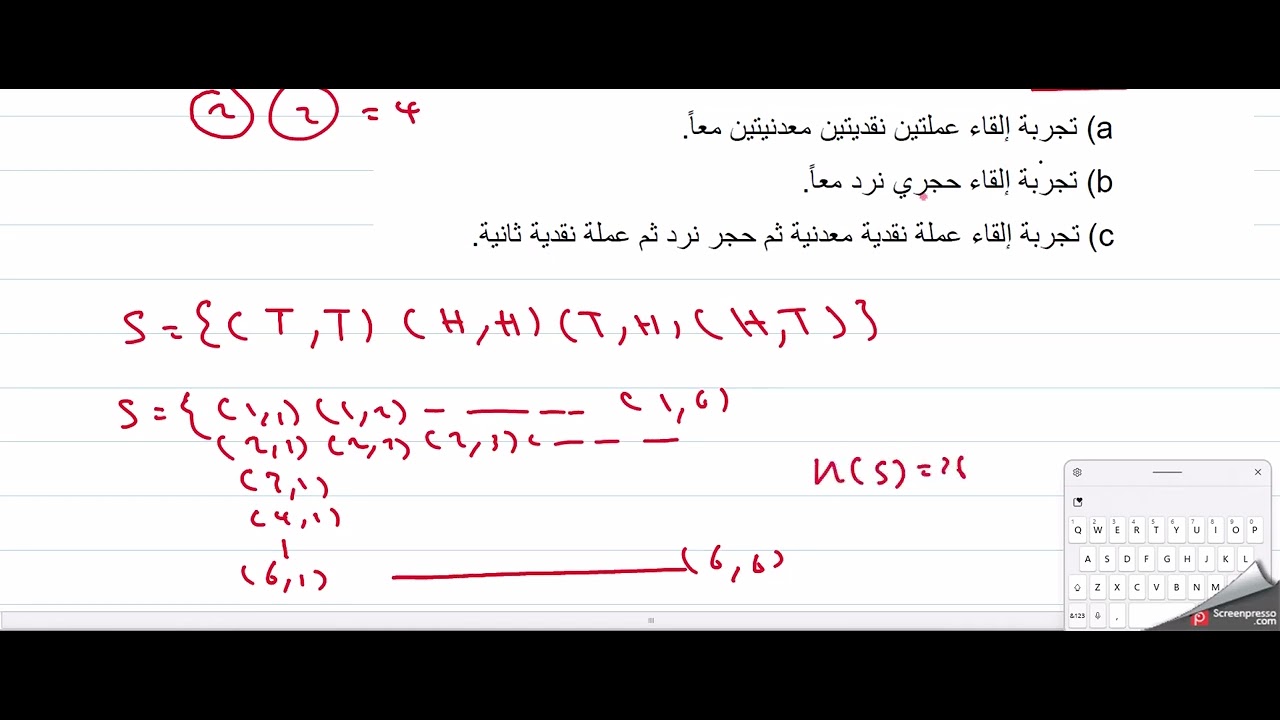 2 2 = 4
a) تجربة إلقاء عملتين نقديتين معدنيتين معاً.
b) تجربة إلقاء حجري نرد معاً.
c) تجربة إلقاء عملة نقدية معدنية ثم حجر نرد ثم عملة نقدية ثانية.
S = {(T,T) (H,H) (T,H, (H,T)}
S = { (1,1) (1,2) - --- -- (1,6)
(2,1) (2,2) (2,3) - -- -- --
(3,1)
n(S) = 36
(4,1)
(6,1) ——— (6,6)
Q W E R T Y U I O P
A S D F G H J K L
Z X C V B N M
&123 ,
Screenpresso
.com